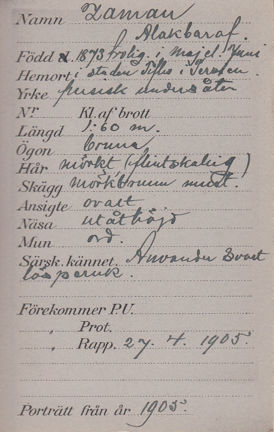 Namn Zaman
Alakbaraf.
Född d. 1873 frolig. i maj el. Juni
Hemort i staden Tiflis i Persien.
Yrke persisk undersåten
Nr Kl. af brott
Längd 1:60 m.
Ögon bruna
Hår mörkt (flintskalig)
Skägg mörkbrunn must.
Ansigte ovalt
Näsa utåtböjd
Mun ord.
Särsk. kännet. Använder svart
lösperuk.
Förekommer P.U.
" Prot.
" Rapp. 27. 4. 1905.
Porträtt från år 1905.